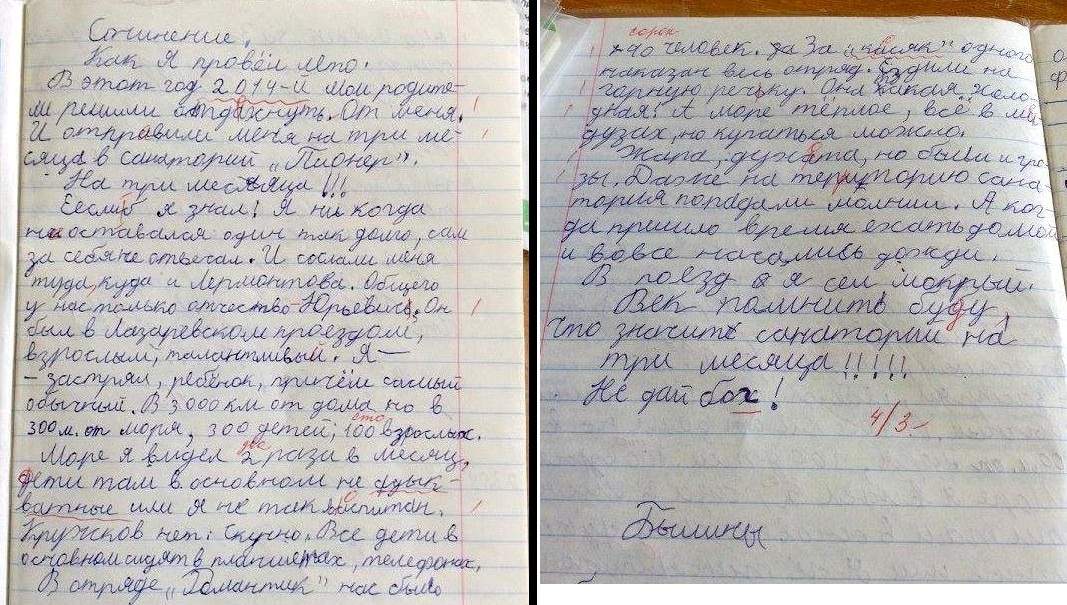 Сочинение.
Как я провёл лето.
В этот год 2014-й мои родите-
ли решили отдахнуть. От меня.
И отправили меня на три ме-
сяца в санаторий „Пионер".
На три месяца!!!
Еслиб я знал! Я ни когда
не оставался один так долго, сам
за себя не отвечал. И сослали меня
туда, куда и Лермонтова. Общего
у нас только отчество-Юрьевич. Он
был в Лазаревском проездом,
взрослый, талантливый. Я —
- застрял, ребёнок, причём самый
обычный. В 3000 км от дома но в
сто
300 м. от моря, 300 детей, 100 взрослых.
два
Море я видел 2 раза в месяц,
дети там в основном не адык-
ватные или я не так воспитан.
Кружков нет. Скучно. Все дети в
основном сидят в планшетах, телефонах.
В отряде „Романтик" нас было
сорок
40 человек. За „касяк" одного
наказан весь отряд. Ездили на
горную речьку. Она такая холо-
дная! А море тёплое, всё в ме-
дузах, но купаться можно.
Жара, духота, но были и гро-
зы. Даже на територию сана-
тория попадали молнии. А ког-
да пришло время ехать домой
и вовсе начались дожди.
В поезд я сел мокрый.
Век помнить буду,
что значит санаторий на
три месяца!!!!!
Не дай бох!
4/3-
Былины